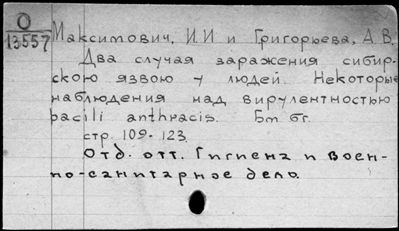 О
13557
Максимович, И.И и Григорьева, А.В.
Два случая заражения сибир-
скою язвою у людей. Некоторые
наблюдения над вирулентностью
bacili anthracis. Бт бг.
стр. 109-123.
Отд. отт. Гигиена и воен-
но-санитарное дело.